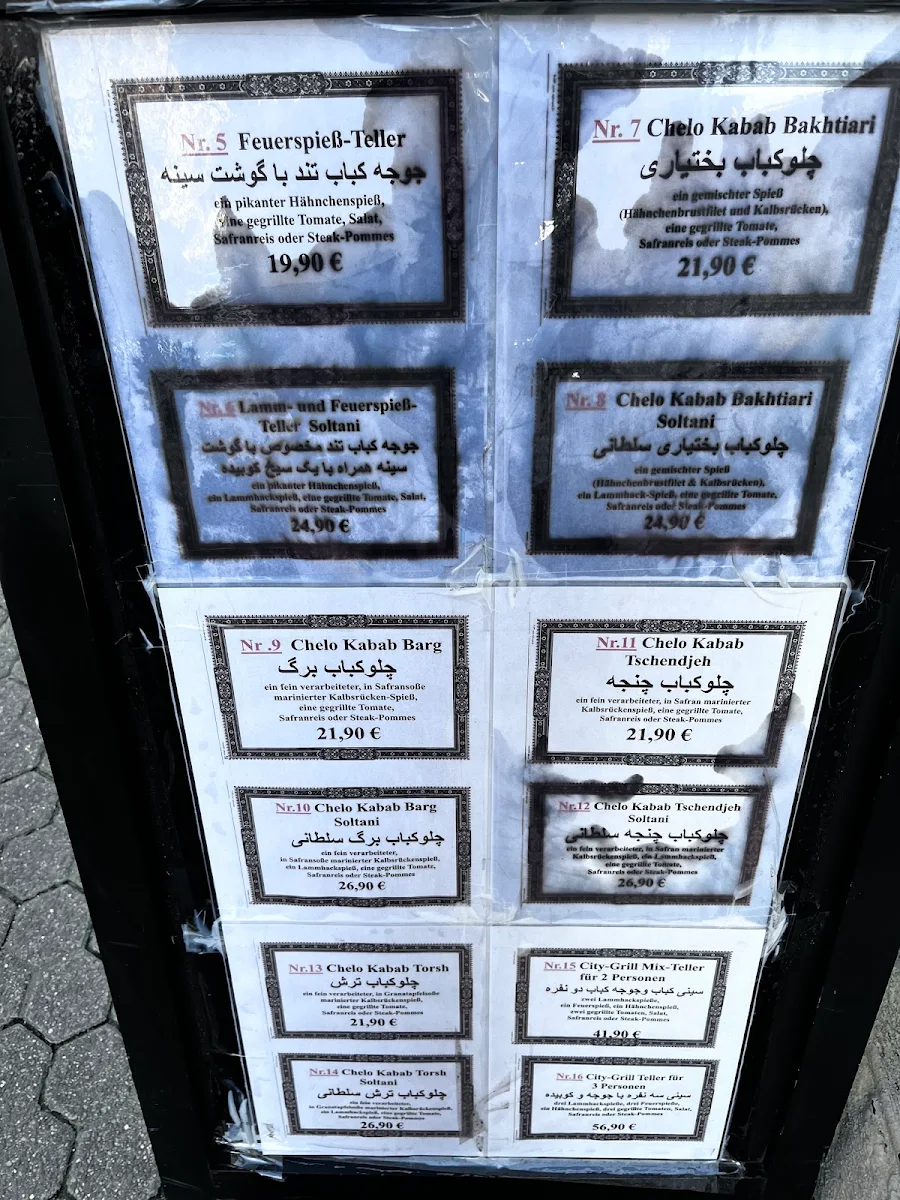 Nr. 5 Feuerspieß-Teller
جوجه کباب تند با گوشت سینه
ein pikanter Hähnchenspieß,
eine gegrillte Tomate, Salat,
Safranreis oder Steak-Pommes
19,90 €
Nr. 6 Lamm- und Feuerspieß-
Teller Soltani
جوجه کباب تند مخصوص با گوشت
سینه همراه با یک سیخ کوبیده
ein pikanter Hähnchenspieß,
ein Lammhackspieß, eine gegrillte Tomate, Salat,
Safranreis oder Steak-Pommes
24,90 €
Nr. 7 Chelo Kabab Bakhtiari
چلوکباب بختیاری
ein gemischter Spieß
(Hähnchenbrustfilet und Kalbsrücken),
eine gegrillte Tomate,
Safranreis oder Steak-Pommes
21,90 €
Nr. 8 Chelo Kabab Bakhtiari
Soltani
چلوکباب بختیاری سلطانی
ein gemischter Spieß
(Hähnchenbrustfilet & Kalbsrücken),
ein Lammhack-Spieß, eine gegrillte Tomate,
Safranreis oder Steak-Pommes
24,90 €
Nr .9 Chelo Kabab Barg
چلوکباب برگ
ein fein verarbeiteter, in Safransoße
marinierter Kalbsrücken-Spieß,
eine gegrillte Tomate,
Safranreis oder Steak-Pommes
21,90 €
Nr.10 Chelo Kabab Barg
Soltani
چلوکباب برگ سلطانی
ein fein verarbeiteter,
in Safransoße marinierter Kalbsrückenspieß,
ein Lammhackspieß, eine gegrillte Tomate,
Safranreis oder Steak-Pommes
26,90 €
Nr.11 Chelo Kabab
Tschendjeh
چلوکباب چنجه
ein fein verarbeiteter, in Safran marinierter
Kalbsrückenspieß, eine gegrillte Tomate,
Safranreis oder Steak-Pommes
21,90 €
Nr.12 Chelo Kabab Tschendjeh
Soltani
چلوکباب چنجه سلطانی
ein fein verarbeiteter, in Safran marinierter
Kalbsrückenspieß, ein Lammhackspieß,
eine gegrillte Tomate,
Safranreis oder Steak-Pommes
26,90 €
Nr.13 Chelo Kabab Torsh
چلوکباب ترش
ein fein verarbeiteter, in Granatapfelsoße
marinierter Kalbsrückenspieß,
eine gegrillte Tomate,
Safranreis oder Steak-Pommes
21,90 €
Nr.14 Chelo Kabab Torsh
Soltani
چلوکباب ترش سلطانی
ein fein verarbeiteter,
in Granatapfelsoße marinierter Kalbsrückenspieß,
ein Lammhackspieß, eine gegrillte Tomate,
Safranreis oder Steak-Pommes
26,90 €
Nr.15 City-Grill Mix-Teller
für 2 Personen
سینی کباب وجوجه کباب دو نفره
zwei Lammhackspieße,
ein Feuerspieß, ein Hähnchenspieß,
zwei gegrillte Tomaten, Salat,
Safranreis oder Steak-Pommes
41,90 €
Nr.16 City-Grill Teller für
3 Personen
سینی سه نفره با جوجه و کوبیده
drei Lammhackspieße, drei Feuerspieße,
ein Hähnchenspieß, drei gegrillte Tomaten, Salat,
Safranreis oder Steak-Pommes
56,90 €